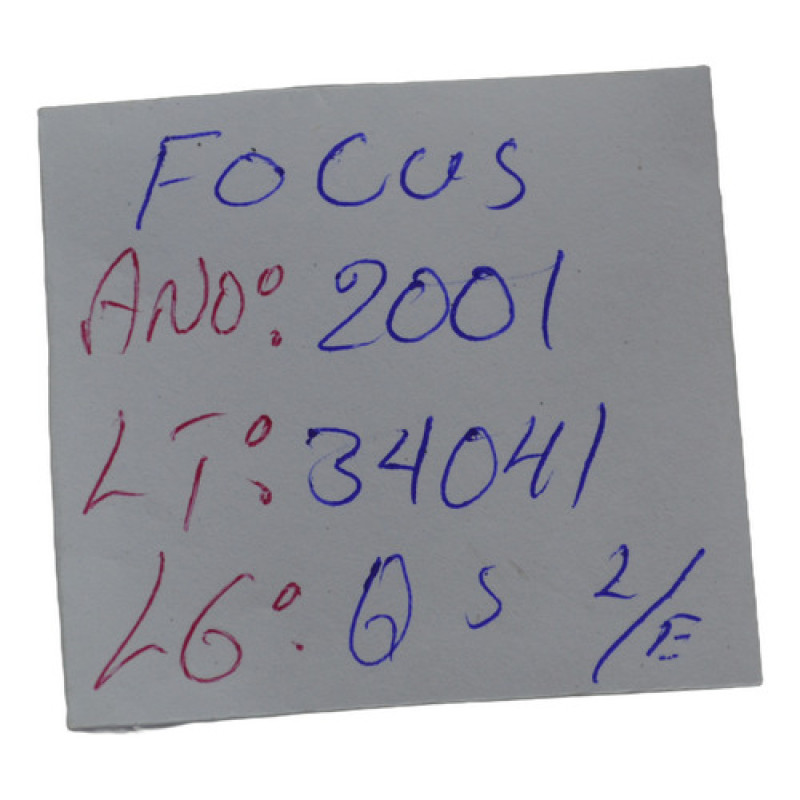 FOCUS
ANO: 2001
LT: 34041
LG: Q S 2/E